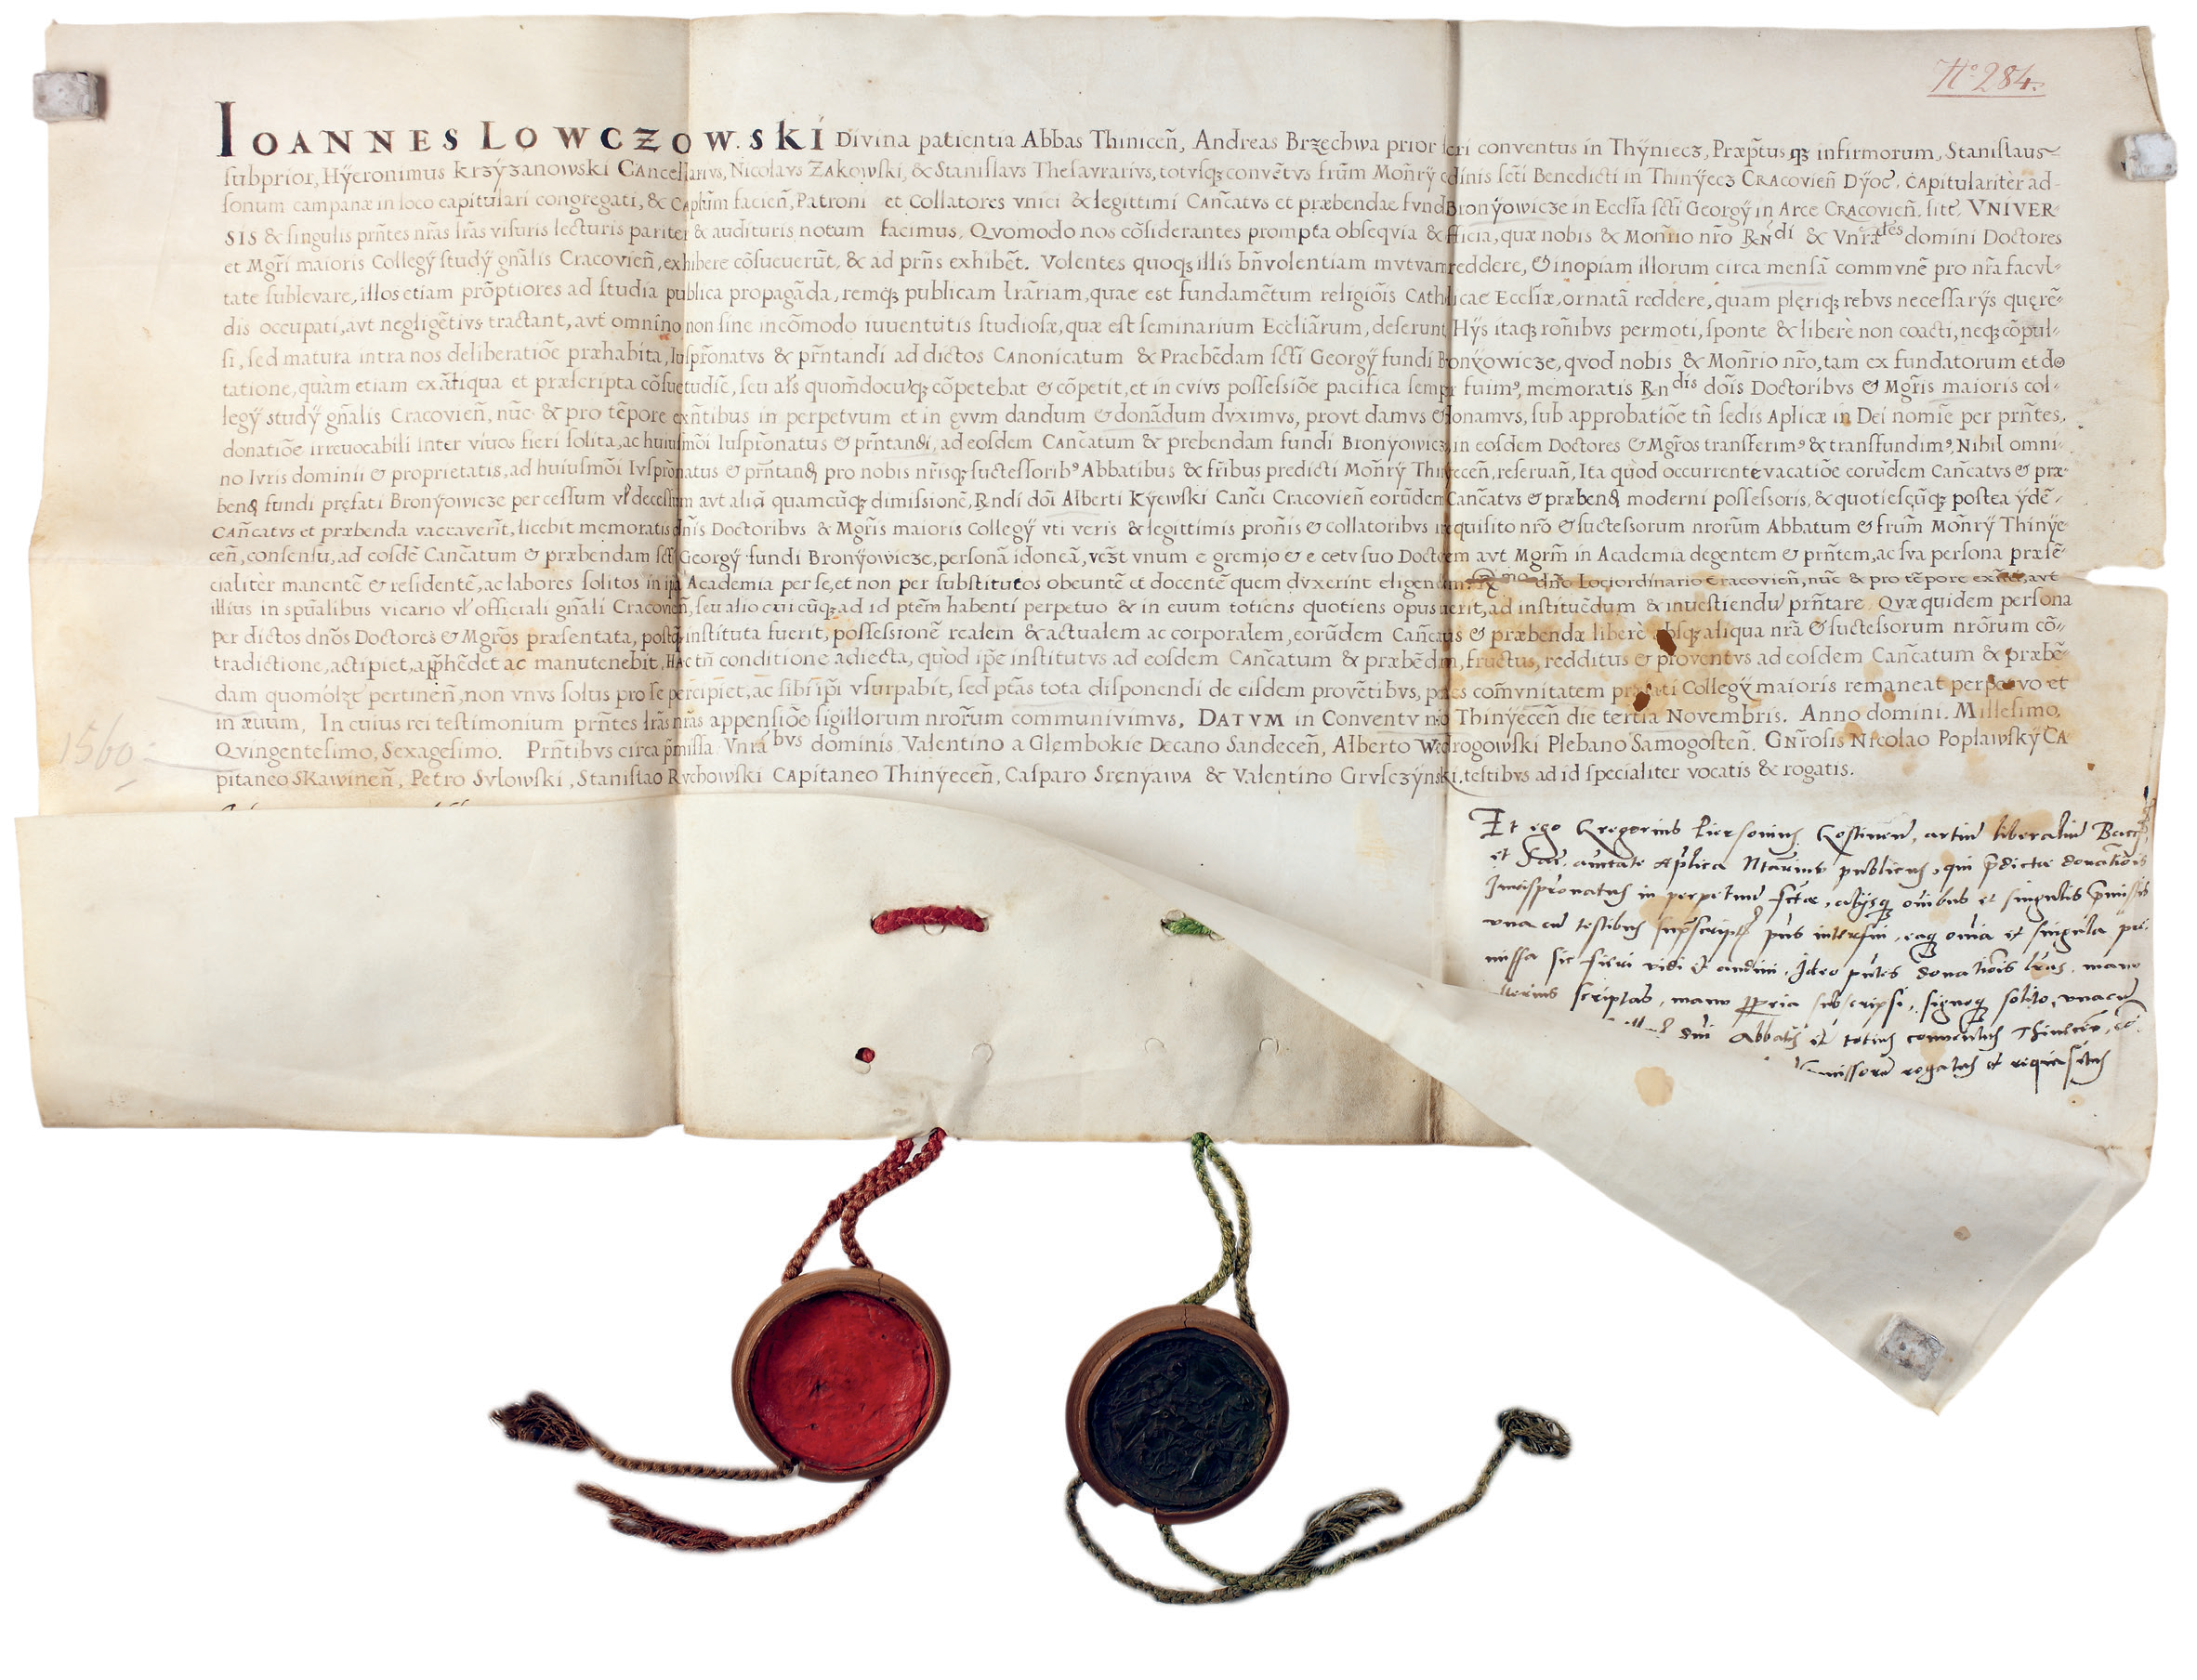 No 284.
IOANNES LOWCZOW.SKI Divina patientia Abbas Thinicen̄, Andreas Brzechwa prior conventus in Thÿniecz, Præp̃tus qȝ infirmorum, Stanislaus
subprior, Hÿeronimus Krzÿzanowski Cancellarivs, Nicolavs Zakowski, & Stanislavs Thesavrarivs, totvsqȝ convẽtvs frũm Moñrÿ sc̃ti Benedicti in Thinÿecz Cracovien̄ Dÿoc̃. Capitularitèr ad
sonum campanæ in loco capitulari congregati, & Caplũm facien̄, Patroni et Collatores vnici & legittimi Cañcatvs et præbendae fvndi Bronÿowicze in Eccl̃ia sc̃ti Georgÿ in Arce Cracovien̄. sitẽ, VNIVER-
SIS & singulis prñtes nr̃as lr̃as visuris lecturis pariter & audituris notum facimus, Qvomodo nos cõsiderantes prompta obseqvia & officia, quæ nobis & Moñrio nr̃o Rñdi & Vnr̃ãdes domini Doctores
et Mgr̃i maioris Collegÿ studÿ gñalis Cracovien̄, exhibere cõsueuerũt, & ad prñs exhibẽt. Volentes quoqȝ illis bñvolentiam mvtvam reddere, & inopiam illorum circa mensã commvnẽ pro nr̃a facvl-
tate sublevare, illos etiam prõptiores ad studia publica propagãda, remqȝ publicam lr̃ariam, quae est fundamẽtum religiõis Catholicae Eccl̃iæ, ornatã reddere, quam plęriqȝ rebvs necessarÿs quęrẽ-
dis occupati, avt negligẽtivs tractant, avt omnino non sine incõmodo iuuentutis studiosæ, quæ est seminarium Eccl̃iãrum, deserunt, Hÿs itaqȝ roñibvs permoti, sponte & liberè non coacti, neqȝ cõpul-
si, sed matura intra nos deliberatiõe præhabita, Iuspr̃onatvs & prñtandi ad dictos Canonicatum & Praebẽdam sc̃ti Georgÿ fundi Bronÿowicze, qvod nobis & Moñrio nr̃o, tam ex fundatorum et do
tatione, quàm etiam ex ãtiqua et præscripta cõsuetudiẽ, seu al̃s quom̃docuqȝ cõpetebat & cõpetit, et in cvivs possessiõe pacifica semper fuim9, memoratis Rndis doĩs Doctoribvs & Mgr̃is maioris col-
legÿ studÿ gñalis Cracovien̄, nũc & pro tẽpore exñtibus in perpetvum et in ęvvm dandum & donãdum dvximvs, provt damvs & donamvs, sub approbatiõe tñ sedis Aplicæ in Dei nomĩe per prñtes,
donatiõe irreuocabili inter viuos fieri solita, ac huiusmõi Iuspr̃onatus & prñtandi, ad eosdem Cañcatum & prebendam fundi Bronÿowicz, in eosdem Doctores & Mgr̃os transferim9 & transfundim9, Nihil omni-
no Ivris dominii & proprietatis, ad huiusmõi Ivspr̃onatus & prñtandi pro nobis nr̃isqȝ suctessorib9 Abbatibus & fr̃ibus predicti Moñrÿ Thinÿecen̄, reseruan̄, Ita quòd occurrente vacatiõe eorũdem Cañcatvs & præ-
bend fundi pręfati Bronÿowicze per cessum vl̃ decessum avt aliã quamcũqȝ dimissionẽ, Rñdi doĩ Alberti Kÿewski Cañci Cracovien̄ eorũdem Cañcatvs & præbend moderni possessoris, & quotiescũqȝ postea ÿdẽ-
Cañcatvs et præbenda vaccaverĩt, licebit memoratis dñis Doctoribvs & Mgr̃is maioris Collegÿ vti veris & legittimis proñis & collatoribvs irrequisito nr̃o & suctessorum nrorũm Abbatum & frum̃ Moñrÿ Thinÿe
cen̄, consensu, ad eosdẽ Cañcatum & præbendam sc̃ti Georgÿ fundi Bronÿowicze, personã idoneã, vcȝt vnum e gremio & e cetv suo Doctorem avt Mgrm̃ in Academia degentem & prñtem, ac sva persona præsẽ-
cialitèr manentẽ & residentẽ, ac labores solitos in ipa Academia per se, et non per substitutos obeuntẽ et docentẽ quem dvxerint eligendum, dño Loci ordinario Cracovien̄, nũc & pro tẽpore exñti, avt
illius in spũalibus vicario vl̃ officiali gñali Cracovien̄, seu alio cuicũqȝ ad id ptẽm habenti perpetuo & in euum totiens quotiens opus fuerit, ad instituẽdum & inuestiendũ prñtare. Qvæ quidem persona
per dictos dnõs Doctores & Mgr̃os praesentata, postqȝ instituta fuerit, possessionẽ realem & actualem ac corporalem, eorũdem Cañcatus & præbendæ liberè absqȝ aliqua nr̃a & suctessorum nrõrum cõ-
tradictione, actipiet, app̃hẽdet ac manutenebit, Hac tñ conditione adiecta, quòd ip̃e institutvs ad eosdem Cañcatum & præbẽdam, fructus, redditus & proventvs ad eosdem Cañcatum & præbẽ-
dam quomõlȝt pertinen̄, non vnvs solus pro se percipiet, ac sibi ip̃i vsurpabit, sed ptãs tota disponendi de eisdem provẽtibvs, penes comṽnitatem præfati Collegÿ maioris remaneat perpetvo et
in æuum, In cuius rei testimonium prñtes lr̃as nr̃as appensiõe sigillorum nrorũm communivimvs, DATVM in Conventv nr̃o Thinÿecen̄ die tertia Novembris. Anno domini. Millesimo,
Qvingentesimo, Sexagesimo. Prñtibvs circa p̃missa Vnr̃ãbvs dominis Valentino a Glembokie Decano Sandecen̄, Alberto Wedrogowski Plebano Samogosten̄. Gñrosis Nicolao Poplawskÿ Ca
pitaneo Skawinen̄, Petro Svlowski, Stanislao Rvchowski Capitaneo Thinÿecen̄, Casparo Srenÿawa & Valentino Grvsczÿnski. testibvs ad id specialiter vocatis & rogatis.
1560
Et ego Gregorius Piersonius Costinen̄, artiũ liberaliũ Bacc
et Sac. auctate Aplica Ntarius publicus, qui p̃dictæ donatiõis
Jurispronatus in perpetuũ fctæ, alÿsqȝ oĩbus et singulis p̃missis
vna cũ testibus sup̃scriptis pñs interfui, eaqȝ oĩa et singula p̃-
missa sic fieri vidi et audiui, Ideo pñtes donatiõis lrãs, manu
alterius scriptas, manu ppria subscripsi, signoqȝ solito, vnacũ
dñi Abbatis et totius conuentus Thinecen̄, cõ
missorẽ rogatus et requisitus